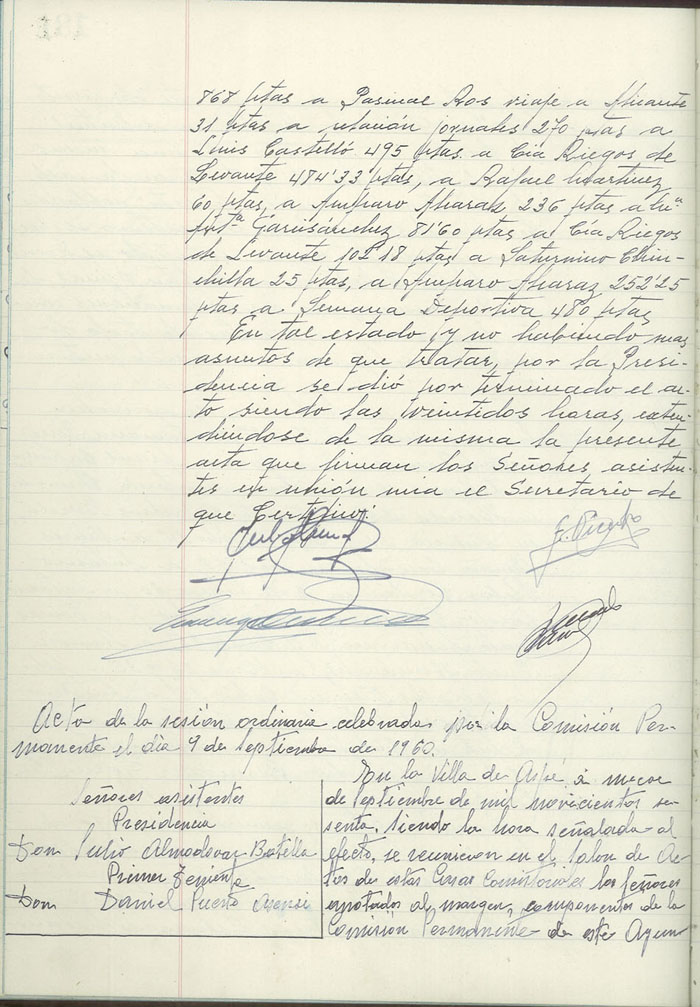 868 ptas a Pascual Aos viaje a Alicante
31 ptas a relación jornales 270 ptas a
Luis Castelló 495 ptas. a Cía Riegos de
Levante 474'33 ptas, a Rafael Martinez
60 ptas, a Amparo Alcaraz 236 ptas a
Garrisanchez 81'60 ptas a Cía Riegos
de Levante 102'18 ptas a Saturnino Chin-
chilla 25 ptas, a Amparo Alcaraz 252'25
ptas a Semana Deportiva 480 ptas
En tal estado y no habiendo mas
asuntos de que tratar, por la Presi-
dencia se dió por terminado el ac-
to siendo las veintidos horas, exten-
diéndose de la misma la presente
acta que firman los Señores asisten-
tes en unión mia el Secretario de
que Certifico:
Acta de la sesión ordinaria celebrada por la Comisión Per-
manente el día 9 de Septiembre de 1960.
Señores asistentes
Presidencia
Don Julio Almodovar Botella
Primer Teniente
Don Daniel Puerto Asensi
En la Villa de Aspe, a nueve
de Septiembre de mil novecientos se-
senta, siendo la hora señalada al
efecto, se reunieron en el Salon de Ac-
tos de estas Casas Consistoriales los Señores
anotados al margen, componentes de la
Comisión Permanente de este Ayun-